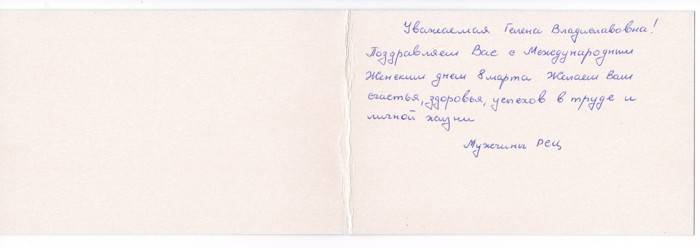 Уважаемая Гелена Владиславовна!
Поздравляем Вас с Международным
Женским днем 8 марта Желаем Вам
счастья, здоровья, успехов в труде и
личной жизни
Мужчины РСЦ